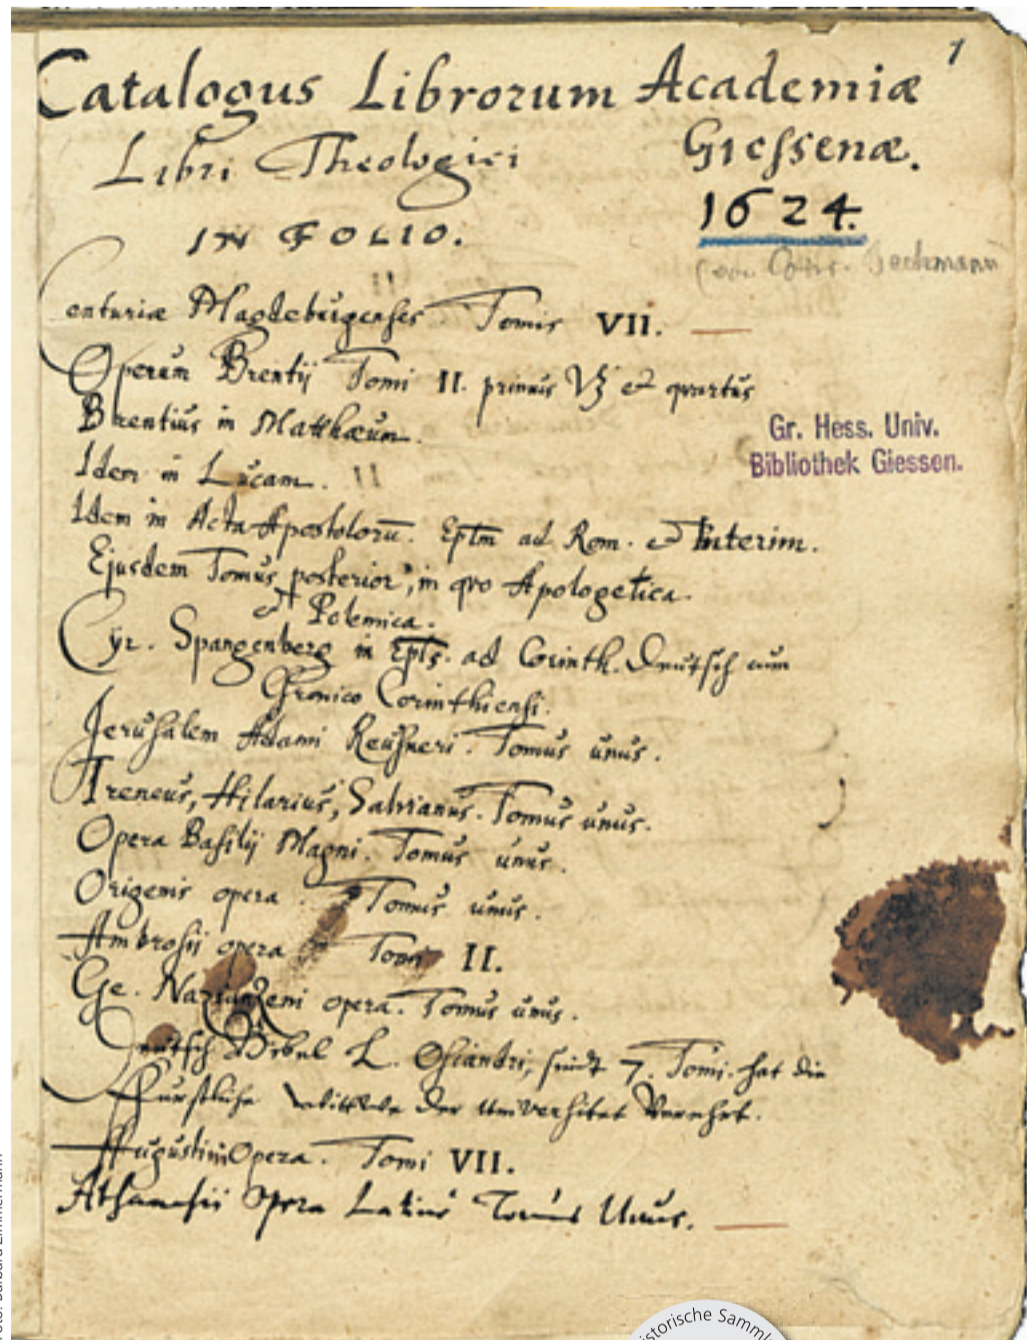 1
Catalogus Librorum Academiæ
Giessenæ.
Libri Theologici
1624.
IN FOLIO.
Centuriæ Magdeburgenses Tomis VII.
Operum Brentij Tomi II. primus et quartus
Brentius in Matthæum.
Gr. Hess. Univ.
Bibliothek Giessen.
Idem in Lucam.
Idem in Acta Apostolorū. Epłm ad Rom. et Interim.
Ejusdem Tomus posterior, in qvo Apologetica
et Polemica.
Cyr. Spangenberg in Epls. ad Corinth. Deutsch cum
Chronico Corinthiensi.
Jerusalem Adami Reusneri. Tomus unus.
Ireneus, Hilarius, Salvianus. Tomus unus.
Opera Basilij Magni. Tomus unus.
Origenis opera. Tomus unus.
Ambrosii opera Tomi II.
Gr. Nazianzeni opera. Tomus unus.
Deutsch Bibel L. Osiandri, seindt 7. Tomi. hat die
Fürstliche Wittwe der Universitet Verehrt.
Augustini Opera. Tomi VII.
Athanasii Opera Latine Tomus Unus.
Foto: Barbara Zimmermann